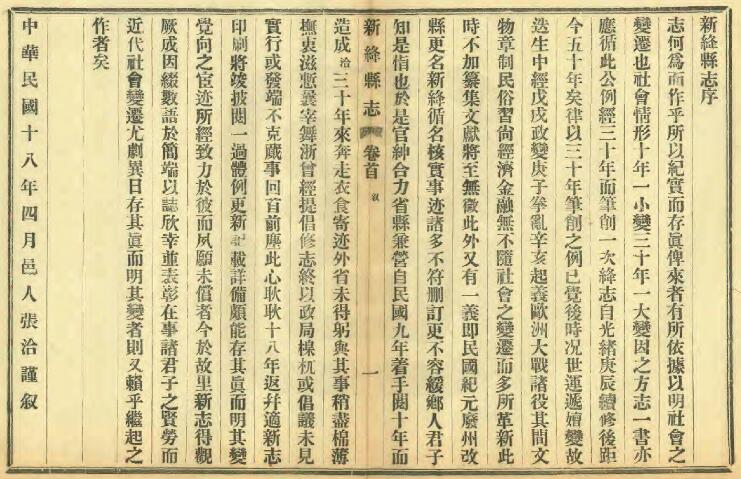 新絳縣志序
志何為而作乎所以紀實而存眞俾來者有所依據以明社會之
變遷也社會情形十年一小變三十年一大變因之方志一書亦
應循此公例經三十年而筆削一次絳志自光緒庚辰續修後距
今五十年矣律以三十年筆削之例已覺後時况世運遞嬗變故
迭生中經戊戌政變庚子拳亂辛亥起義歐洲大戰諸役其間文
物章制民俗習尙經濟金融無不隨社會之變遷而多所革新此
時不加纂集文獻將至無徵此外又有一義卽民國紀元廢州改
縣更名新絳循名核實事迹諸多不符删訂更不容緩鄉人君子
知是惜也於是官紳合力省縣兼營自民國九年着手閱十年而
新絳縣志 卷首 叙 一
造成洽三十年來奔走衣食寄迹外省未得躬與其事稍盡棉薄
撫衷滋慙曩宰舞浙曾經提倡修志終以政局槺杌或倡議未見
實行或發端不克蕆事回首前塵此心耿耿十八年返幷適新志
印刷將竣披閱一過體例更新記載詳備頗能存其眞而明其變
覺向之宦迹所經致力於彼而夙願未償者今於故里新志得觀
厥成因綴數語於簡端以誌欣幸並表彰在事諸君子之賢勞而
近代社會變遷尤劇異日存其眞而明其變者則又賴乎繼起之
作者矣
中華民國十八年四月邑人張洽謹叙